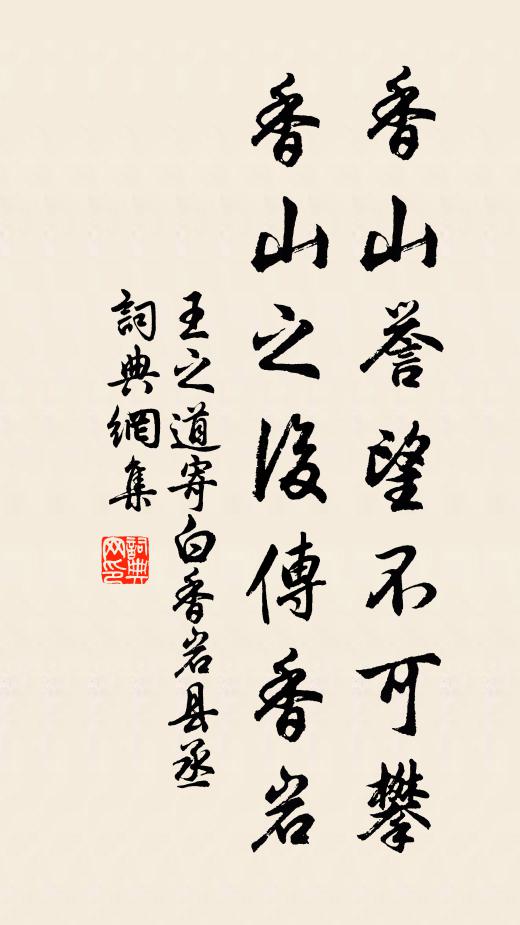 香山誉望不可攀
香山之後傳香岩
王之道寄白香岩县丞
詞典網集
詞典网印